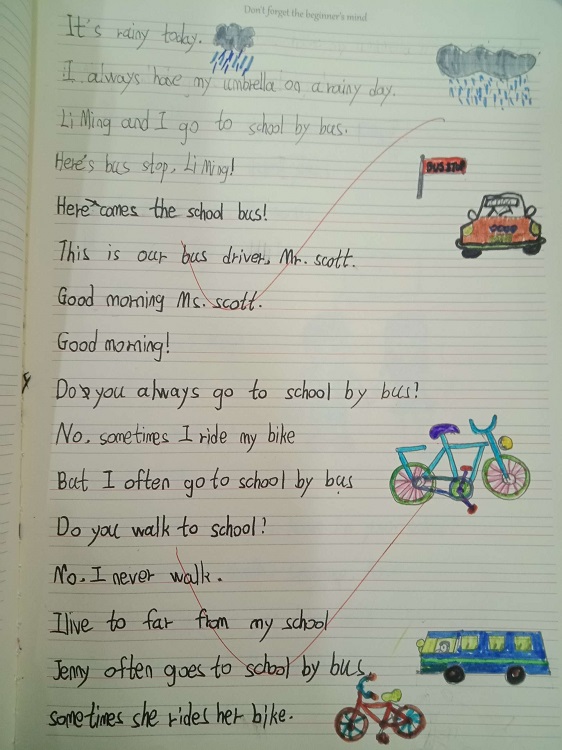 Don't forget the beginner's mind
It's rainy today.
I always have my umbrella on a rainy day.
Li Ming and I go to school by bus.
Here's bus stop, Li Ming!
BUS STOP
Here comes the school bus!
This is our bus driver, Mr. scott.
Good morning Ms. scott.
Good morning!
Do you always go to school by bus?
No, sometimes I ride my bike
But I often go to school by bus
Do you walk to school?
No. I never walk.
I live to far from my school
Jenny often goes to school by bus,
sometimes she rides her bike.